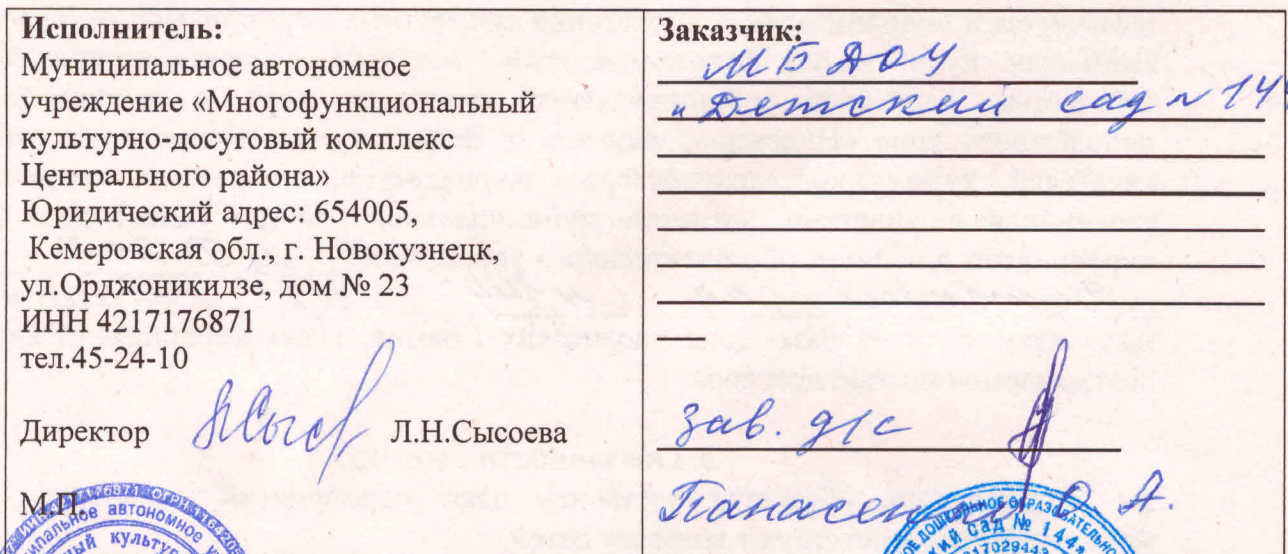 Исполнитель:
Муниципальное автономное
учреждение «Многофункциональный
культурно-досуговый комплекс
Центрального района»
Юридический адрес: 654005,
Кемеровская обл., г. Новокузнецк,
ул.Орджоникидзе, дом № 23
ИНН 4217176871
тел.45-24-10
Директор Л.Н.Сысоева
М.П.
Заказчик:
МБДОУ
"Детский сад № 14
зав. д/с
О. А.
автономное
культур
сад №